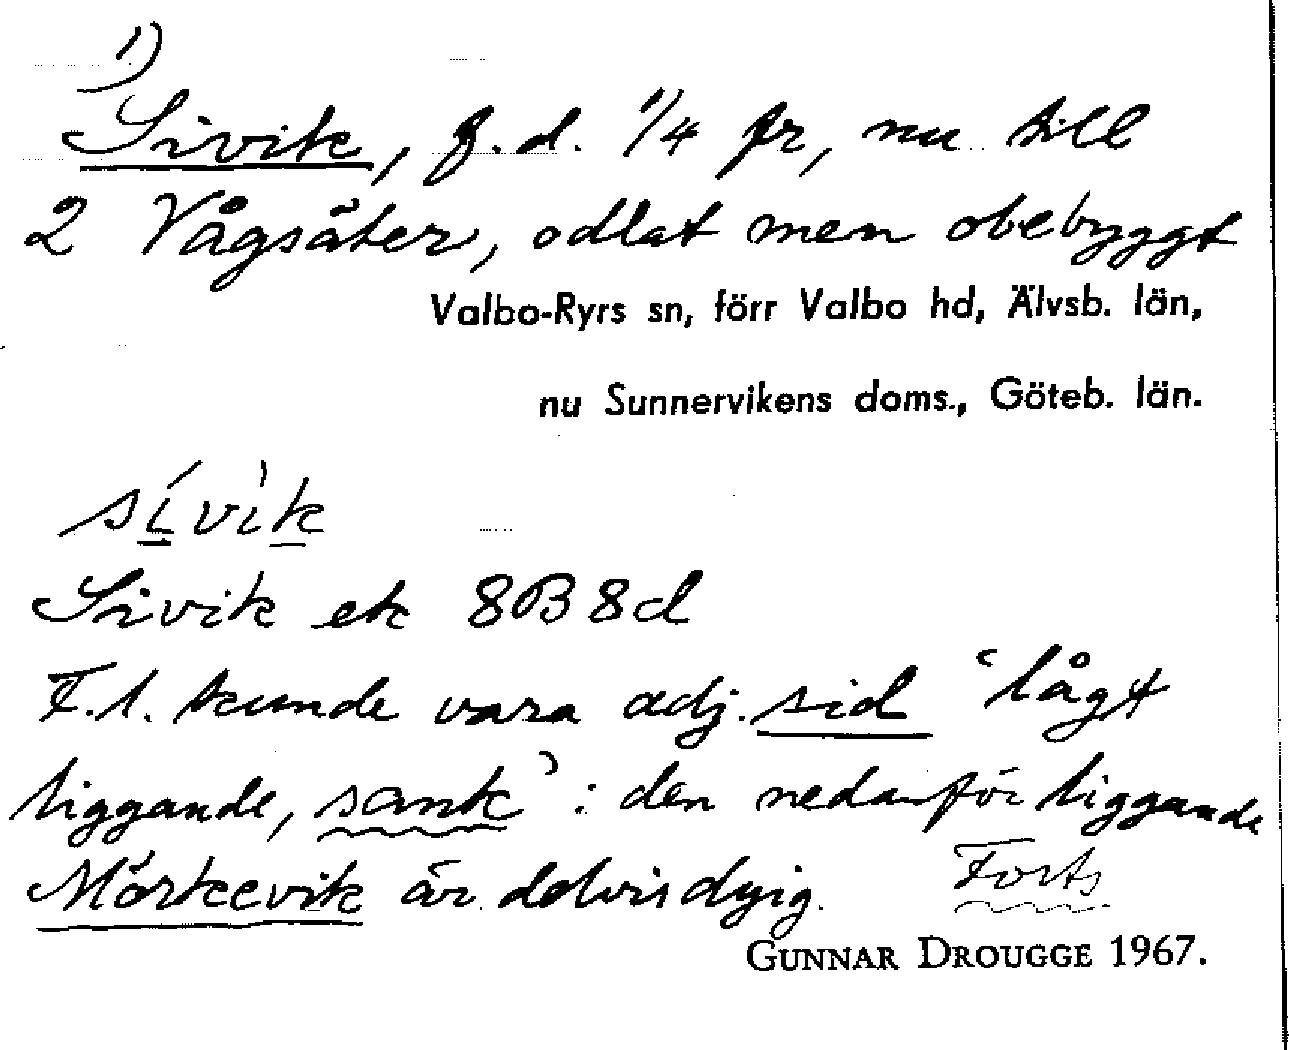 1)
Sivik, f.d. 1/4 fr, nu till
2 Vågsäter, odlat men obebyggt
Valbo-Ryrs sn, förr Valbo hd, Älvsb. län,
nu Sunnervikens doms., Göteb. län.
sívìk
Sivik ek 8B8d
F.l. kunde vara adj. sid 'lågt
liggande, sank': den nedanför liggande
Mörkevik är delvis dyig. Forts
GUNNAR DROUGGE 1967.